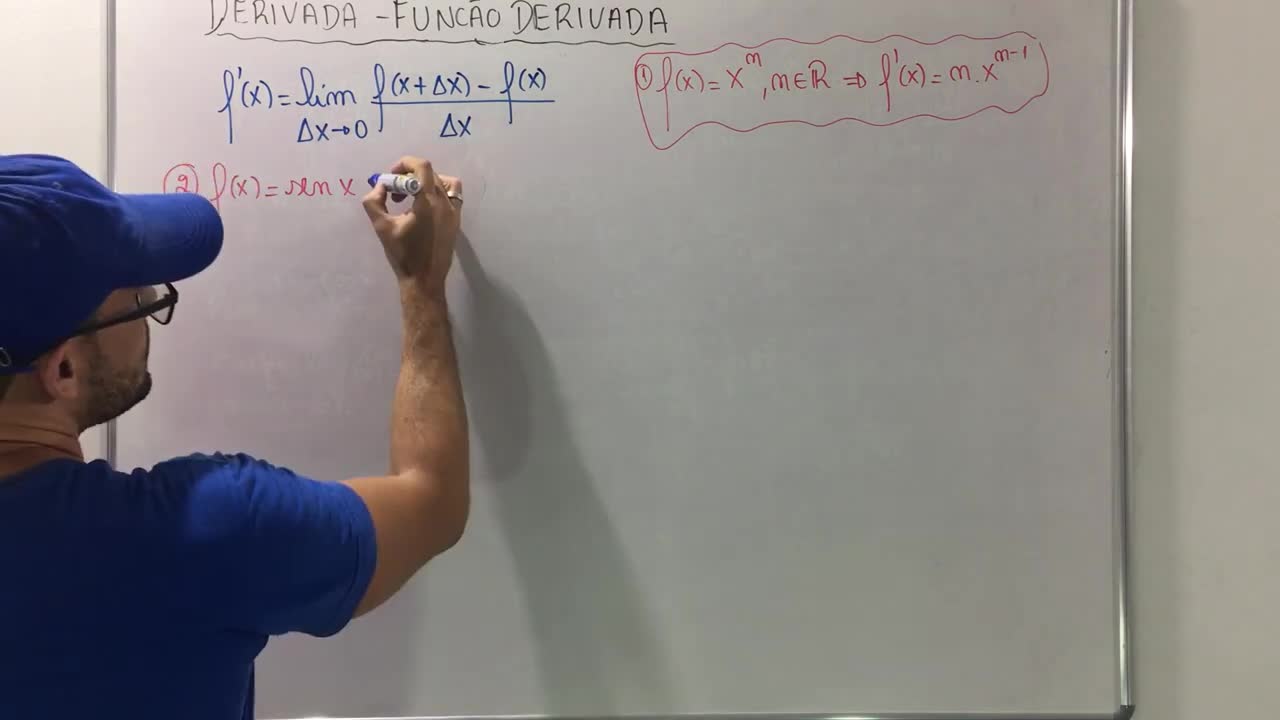 DERIVADA - FUNCÃO DERIVADA
f'(x) = lim Δx→0 f(x+Δx) - f(x) / Δx
① f(x) = x^m, m∈ℝ ⇒ f'(x) = m.x^{m-1}
② f(x) = sen x